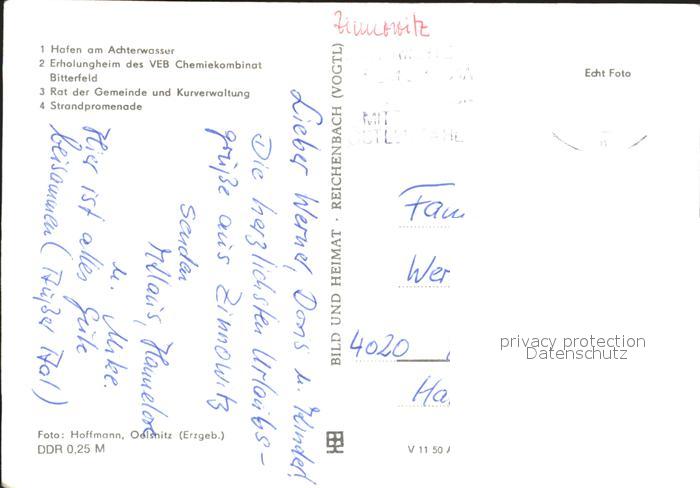 Zinnowitz
1 Hafen am Achterwasser
2 Erholungheim des VEB Chemiekombinat
Bitterfeld
3 Rat der Gemeinde und Kurverwaltung
4 Strandpromenade
Echt Foto
Lieber Werner, Doris u. Kinder!
Die herzlichsten Urlaubs-
grüße aus Zinnowitz
senden
Klaus, Hannelore
u. Maike.
Hier ist alles Gute
beisammen (Außer Aal)
BILD UND HEIMAT · REICHENBACH (VOGTL)
MIT
Fam
Wer
4020
Ha
privacy protection
Datenschutz
Foto: Hoffmann, Oelsnitz (Erzgeb.)
DDR 0,25 M
V 11 50 A